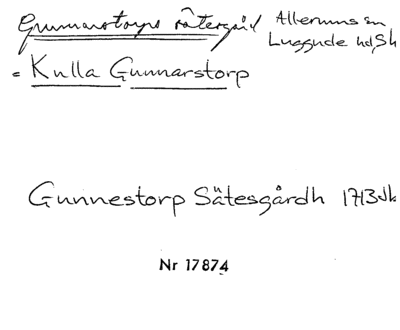 Gunnarstorps sätergård Allerums sn
Luggude hd, Sk
= Kulla Gunnarstorp
Gunnestorp Sätesgårdh 1713 Jb
Nr 17874